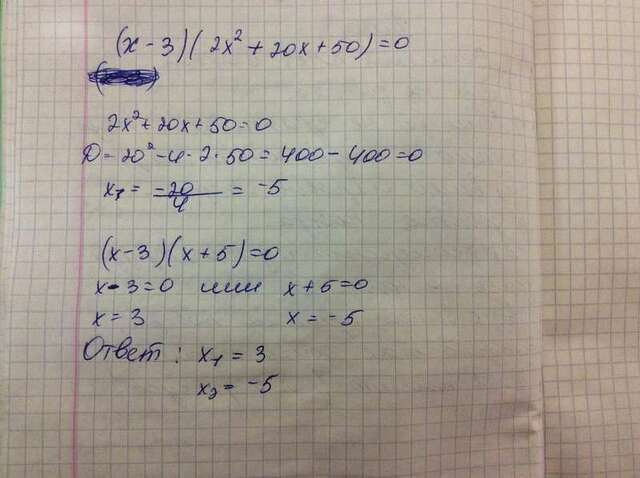 (x - 3)(2x² + 20x + 50) = 0
2x² + 20x + 50 = 0
D = 20² - 4 · 2 · 50 = 400 - 400 = 0
x₁ = -20/4 = -5
(x - 3)(x + 5) = 0
x - 3 = 0 или x + 5 = 0
x = 3 x = -5
Ответ: x₁ = 3
x₂ = -5